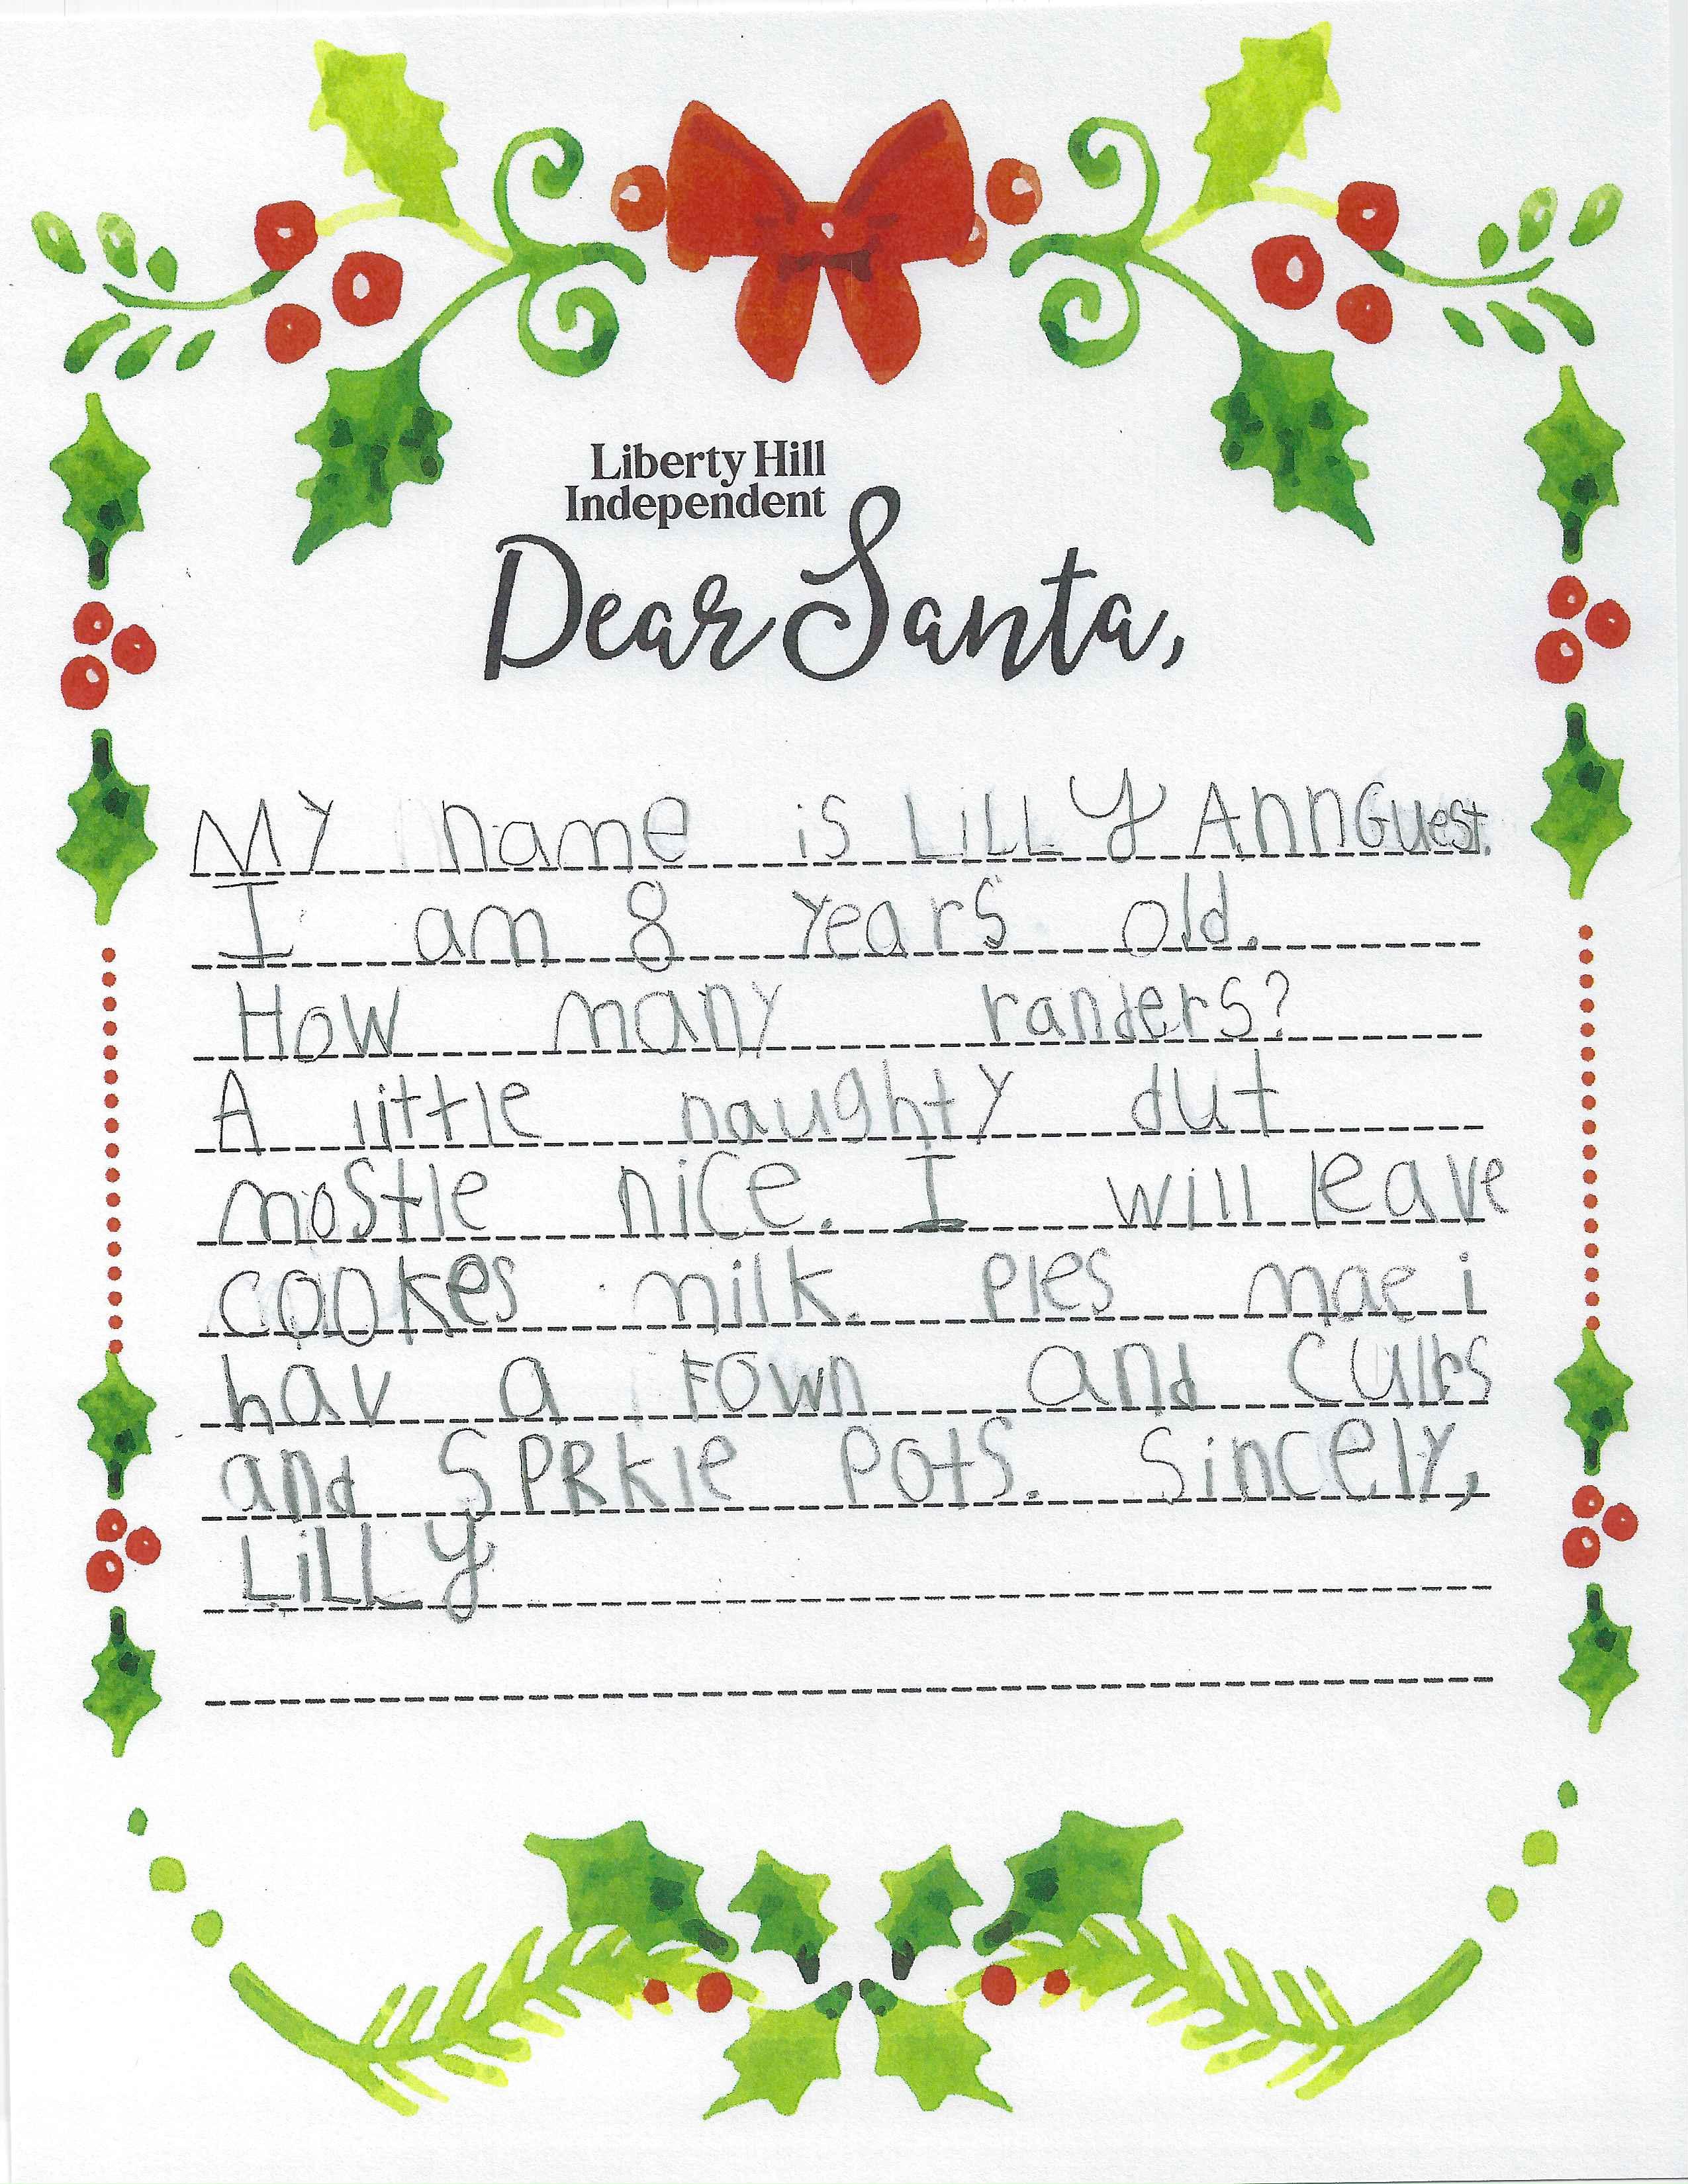 Liberty Hill
Independent
Dear Santa,
My name is LiLLY AnnGuest.
I am 8 years old.
How many randers?
A little naughty dut
mostle nice. I will leave
cookes milk. ples mae i
hav a rown and culrs
and SPRkle Pots. Sincely,
LiLLY